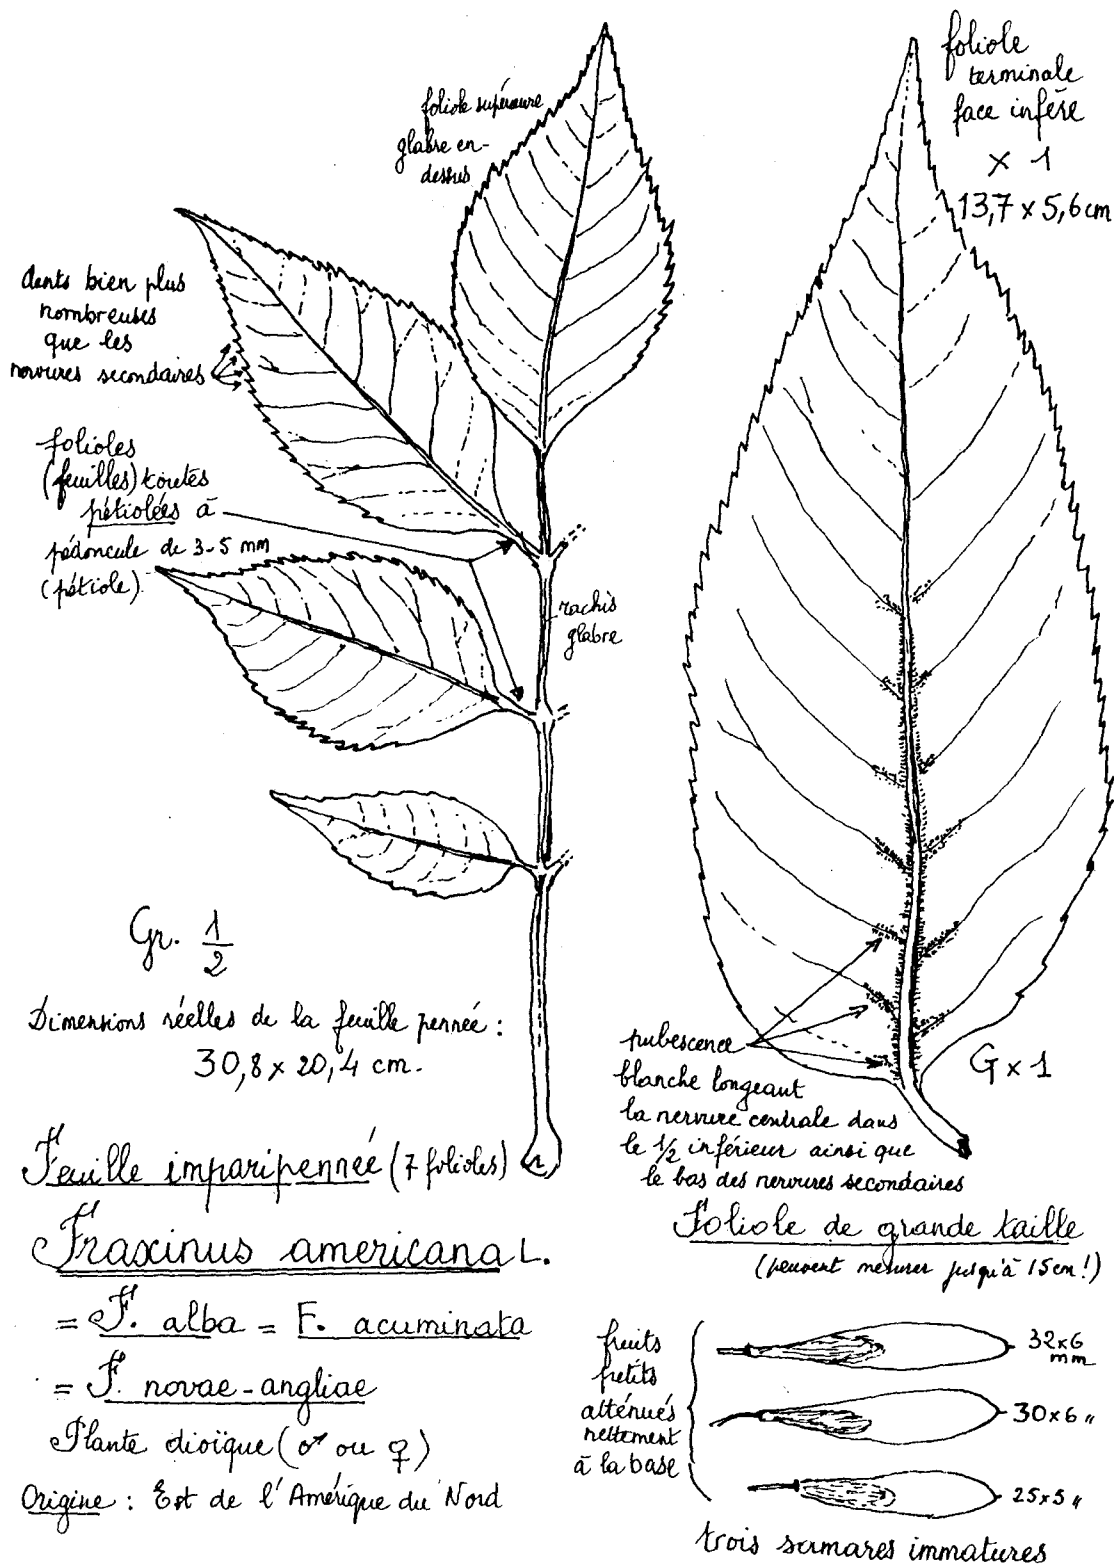 foliole supérieure
glabre en-
dessus
foliole
terminale
face infère
x 1
13,7 x 5,6 cm
dents bien plus
nombreuses
que les
nervures secondaires
folioles
(feuilles) toutes
pétiolées à
pédoncule de 3-5 mm
(pétiole)
rachis
glabre
Gr. 1/2
Dimensions réelles de la feuille pennée :
30,8 x 20,4 cm.
Feuille imparipennée (7 folioles)
Fraxinus americana L.
= F. alba = F. acuminata
= F. novae-angliae
Plante dioïque (♂ ou ♀)
Origine : Est de l'Amérique du Nord
pubescence
blanche longeant
la nervure centrale dans
le 1/2 inférieur ainsi que
le bas des nervures secondaires
G x 1
Foliole de grande taille
(peuvent mesurer jusqu'à 15 cm !)
fruits
petits
atténués
nettement
à la base
32x6
mm
30x6 "
25x5 "
trois samares immatures